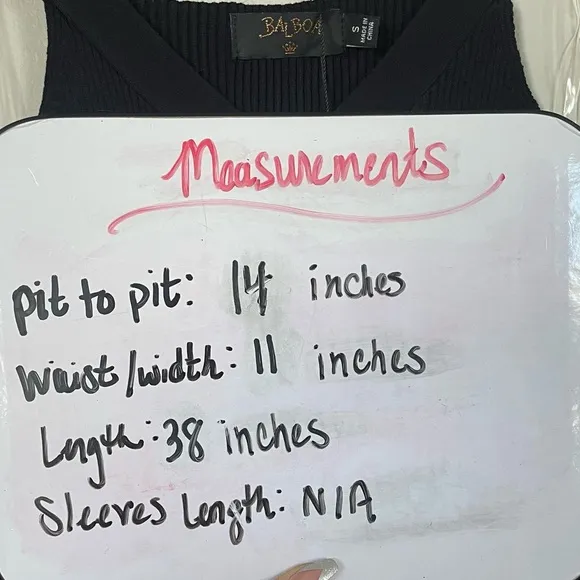 BALBOA
S
MADE IN
CHINA
Measurements
pit to pit: 14 inches
Waist/width: 11 inches
Length: 38 inches
Sleeves Length: N/A